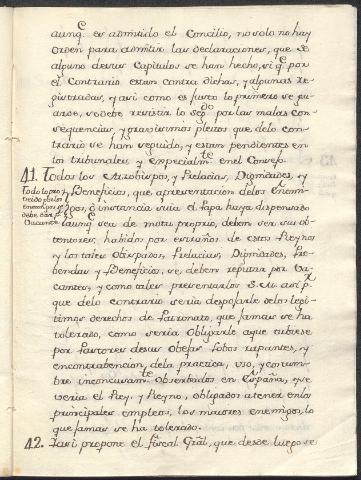 aunq.e es admitido el Concilio, no solo no hay
orden para admitir las declaraciones, que de
alguno de sus Capitulos se han hecho, si q.e por
el Contrario estan contra dichas, y algunas re-
gistradas, y asi como es justo lo primero se gu-
arde, se debe resistir lo seg.do por las malas con-
sequencias, y gravissimos pleitos que de lo con-
trario se han seguido, y estan pendientes en
los tribunales y especialm.te en el Consejo.
41. Todos los Arzobispos, y Prelacias, Dignidades, y
Beneficios, que a presentacion de los Enemi-
gos, ó instancia suia el Papa huya dispensado
aunq.e sea de mutu proprio, deben ser sus ob-
tentores, habidos por estraños de estos Reynos
y los tales Obispados, Prelacias, Dignidades, Pre-
bendas y Beneficios, se deben reputar por Va-
cantes, y como tales presentarlos S. M. asi p.r
que de lo contrario seria despojarle de los legi-
timos derechos de Patronato, que jamas se ha
tolerado, como seria Obligarle a que tubiese
por Pastores de sus Obejas Lobos rapantes, y
en contrabencion, de la practica, uso, y costum-
bre inconcusam.te Observados en España, que
seria el Rey, y Reyno, obligados a tener en los
principales empleos, los maiores enemigos, lo
que jamas se ha tolerado.
42. Y asi propone el fiscal Gral, que desde luego se
Todo lo pro-
veido por los
Enemigos se
debe dar p.r
Vacante